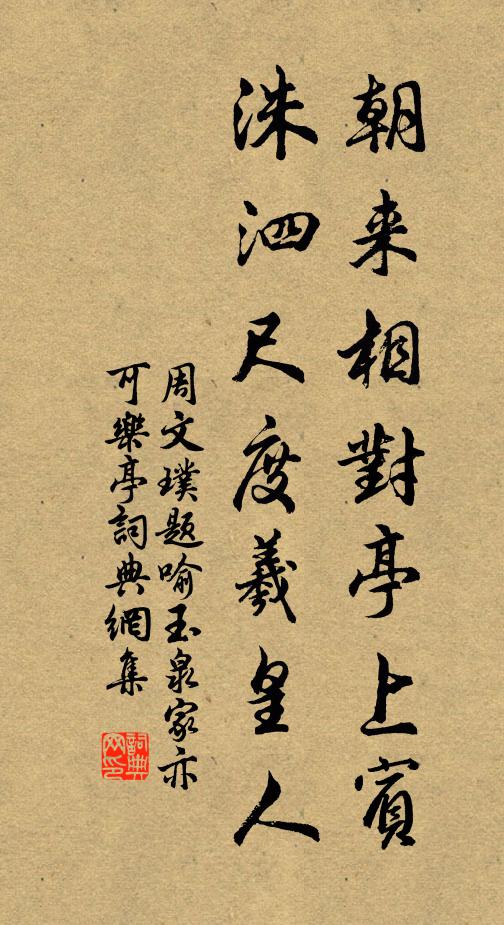 朝来相對亭上賓
洙泗尺度羲皇人
周文璞题喻玉泉家亦
可樂亭詞典網集
詞典网印